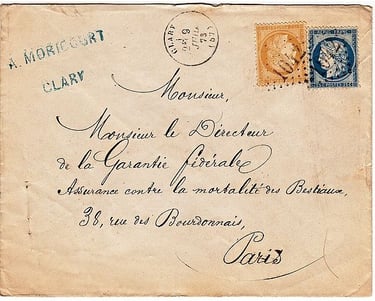 A. MORICOURT
CLARY
CLARY
9
73
REPUB. FRANC.
25 POSTES 25
Monsieur,
Monsieur le Directeur
de la Garantie fédérale
Assurance contre la mortalité des Bestiaux,
38, rue des Bourdonnais,
Paris